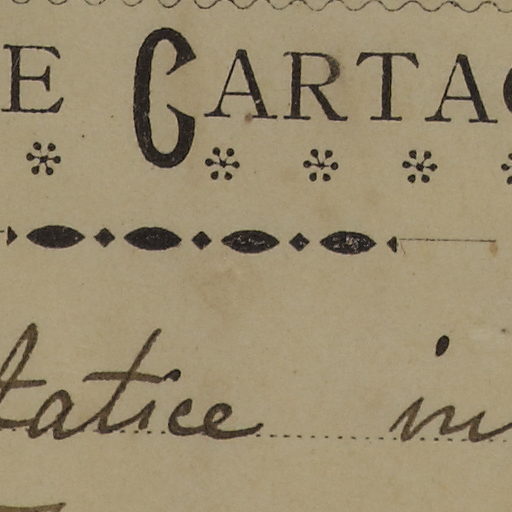 E CARTAG
tatice in